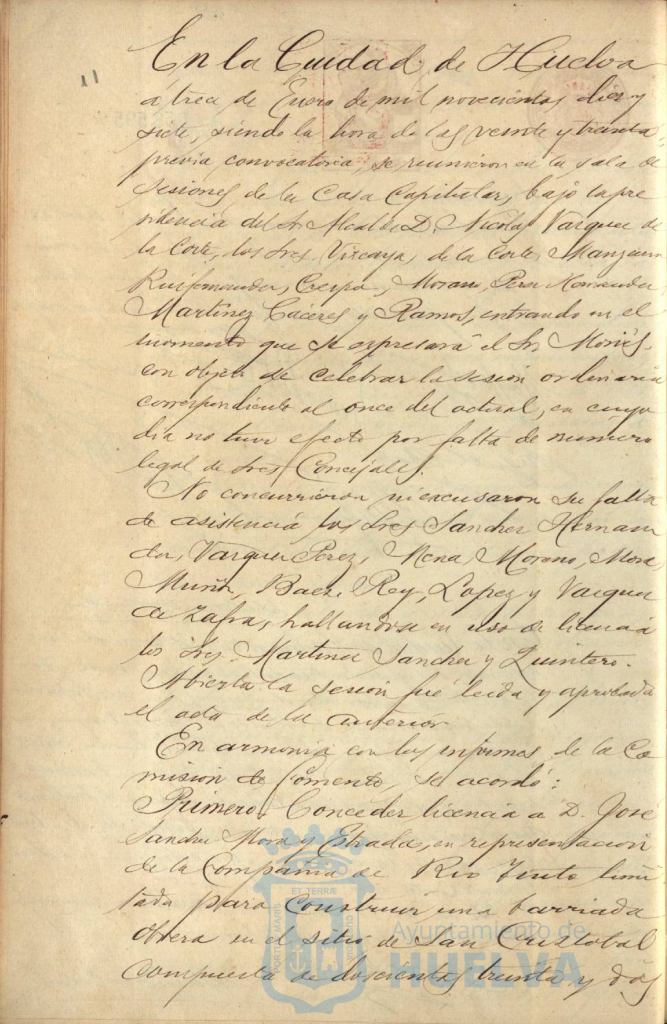 11
En la Cuidad de Huelva
a trece de Enero de mil novecientos diez y
siete, siendo la hora de las veinte y treinta
previa convocatoria, se reunieron en la sala de
sesiones de la Casa Capitular, bajo la pre
sidencia del Sr Alcalde D. Nicolas Vazquez de
la Corte, los Sres Vizcaya, de la Corte, Manzano
Ruifernandez, Crespo, Moreno, Perez Hernandez
Martinez Cáceres y Ramos, entrando en el
momento que se expresará el Sr
con objeto de celebrar la sesión ordinaria
correspondiente al once del actual, en cuyo
dia no tuvo efecto por falta de numero
legal de Sres Concejales.
No concurrieron ni excusaron su falta
de asistencia los Sres Sanchez Hernan
dez, Vazquez Perez, Mena, Moreno, Mora,
Muñoz, Baez, Rey, Lopez y Vazquez
de Zafra, hallandose en uso de licencia
los Sres. Martinez Sanchez y Quintero.
Abierta la sesión fué leida y aprobada
el acta de la anterior.
En armonia con los informes de la Co
misión de Fomento, se acordó:
Primero. Conceder licencia a D. José
Sanchez Mora y Estrada, en representación
de la Compañia de Rio Tinto limi
tada para construir una barriada
obrera en el sitio de San Cristobal
compuesta de doscientas treinta y dos
Ayuntamiento de
HUELVA